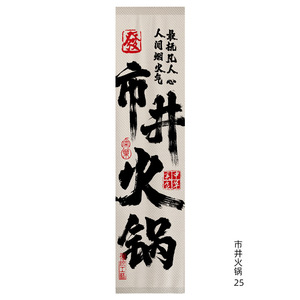 最抚凡人心
人间烟火气
市井火锅
市井火锅
25